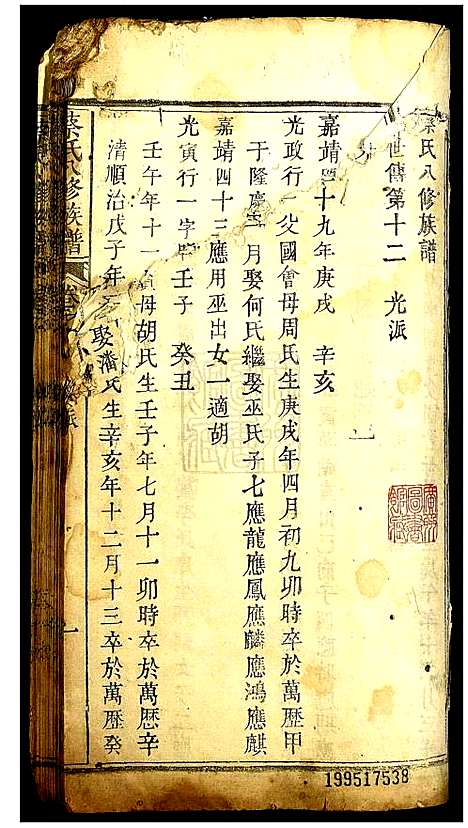 蔡氏八修族譜
世傳第十二 光派
嘉靖 十九年庚戌 辛亥
光政行一 父國會母周氏生庚戌年四月初九卯時卒於萬歷甲
于隆慶 月娶何氏繼娶巫氏子七應龍應鳳應麟應鴻應麒
嘉靖四十三應用巫出女一適胡
光寅行一字 壬子 癸丑
壬午年十一 母胡氏生壬子年七月十一卯時卒於萬歷辛
清順治戊子年 娶潘氏生辛亥年十二月十三卒於萬歷癸
蔡氏八修族譜 卷 派 一
199517538